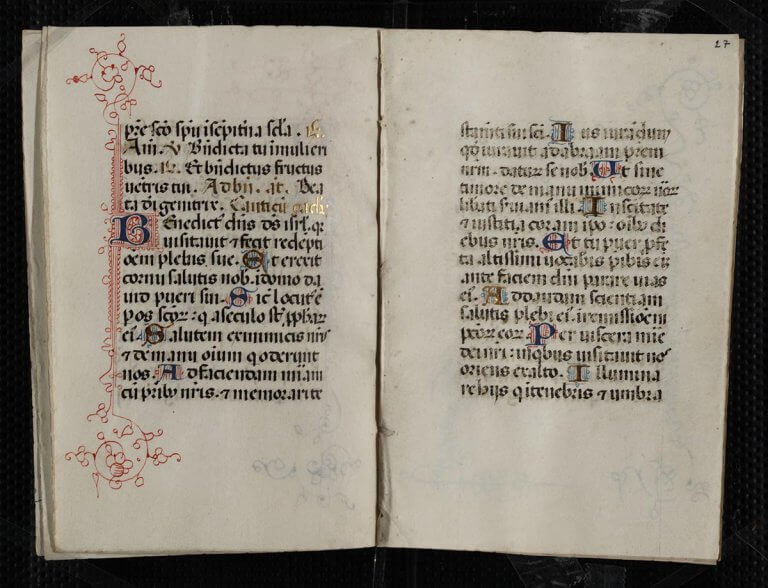 pr̄e sc̄o spū ī sēpitna scl̄a. R̄.
Am̄. V̄ Bn̄dicta tu ī mulieri
bus. R̄. Et bn̄dictus fructus
uētris tui. Ad bn̄. añ. Bea
ta dī genitrix. Canticū zach
BEnedict᾽ dn̄s ds̄ isrl̄. qz
uisitauit ⁊ fecit redēpti
oēm plebis sue. Et erexit
cornu salutis nob. ī domo da
uid pueri sui. Sic locut᾽ ē
p os scōr. q a seculo st̄ pphar
ei᾽. Salutem ex inimicis nr̄is
⁊ de manu oīum q oderunt
nos. Ad faciendam mīam
cū prib nr̄is. ⁊ memorari te
27
stam̄ti sui sc̄i. Ius iurādum
qd̄ iurauit ad abraam prem
nrm. daturū se nob. Ut sine
timore de manu inimicor nr̄or
liberati seruiam᾽ illi. In scitate
⁊ iustitia coram ipo. oīb di
ebus nr̄is. Et tu puer pfe
ta altissimi uocab̄is p̄ibis ei
ante faciem dn̄i parare uias
ei᾽. Ad dandam scientiam
salutis plebi ei᾽. ī remissiōem
pctōr eor. Per uiscera mīe
dei nr̄i. ī quibus uisitauit nos
oriens ex alto. Illumina
re hijs q ī tenebris ⁊ umbra